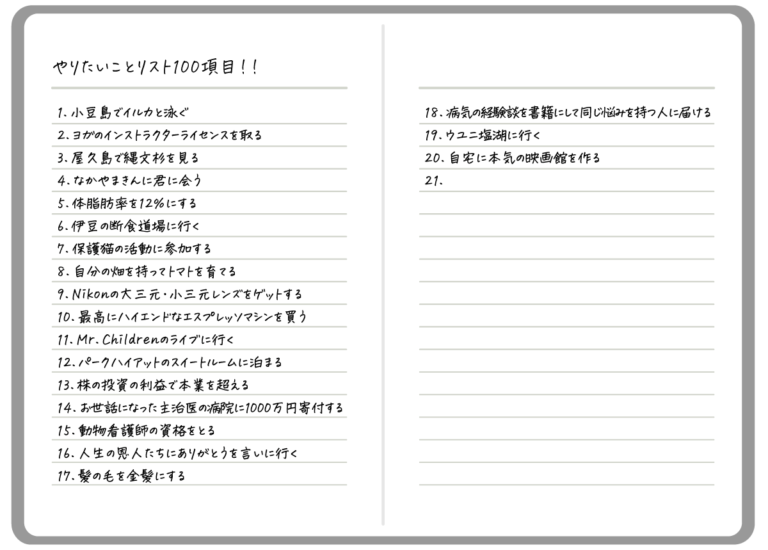 やりたいことリスト100項目！！
1. 小豆島でイルカと泳ぐ
2. ヨガのインストラクターライセンスを取る
3. 屋久島で縄文杉を見る
4. なかやまきんに君に会う
5. 体脂肪率を12％にする
6. 伊豆の断食道場に行く
7. 保護猫の活動に参加する
8. 自分の畑を持ってトマトを育てる
9. Nikonの大三元・小三元レンズをゲットする
10. 最高にハイエンドなエスプレッソマシンを買う
11. Mr.Childrenのライブに行く
12. パークハイアットのスイートルームに泊まる
13. 株の投資の利益で本業を超える
14. お世話になった主治医の病院に1000万円寄付する
15. 動物看護師の資格をとる
16. 人生の恩人たちにありがとうを言いに行く
17. 髪の毛を金髪にする
18. 病気の経験談を書籍にして同じ悩みを持つ人に届ける
19. ウユニ塩湖に行く
20. 自宅に本気の映画館を作る
21.